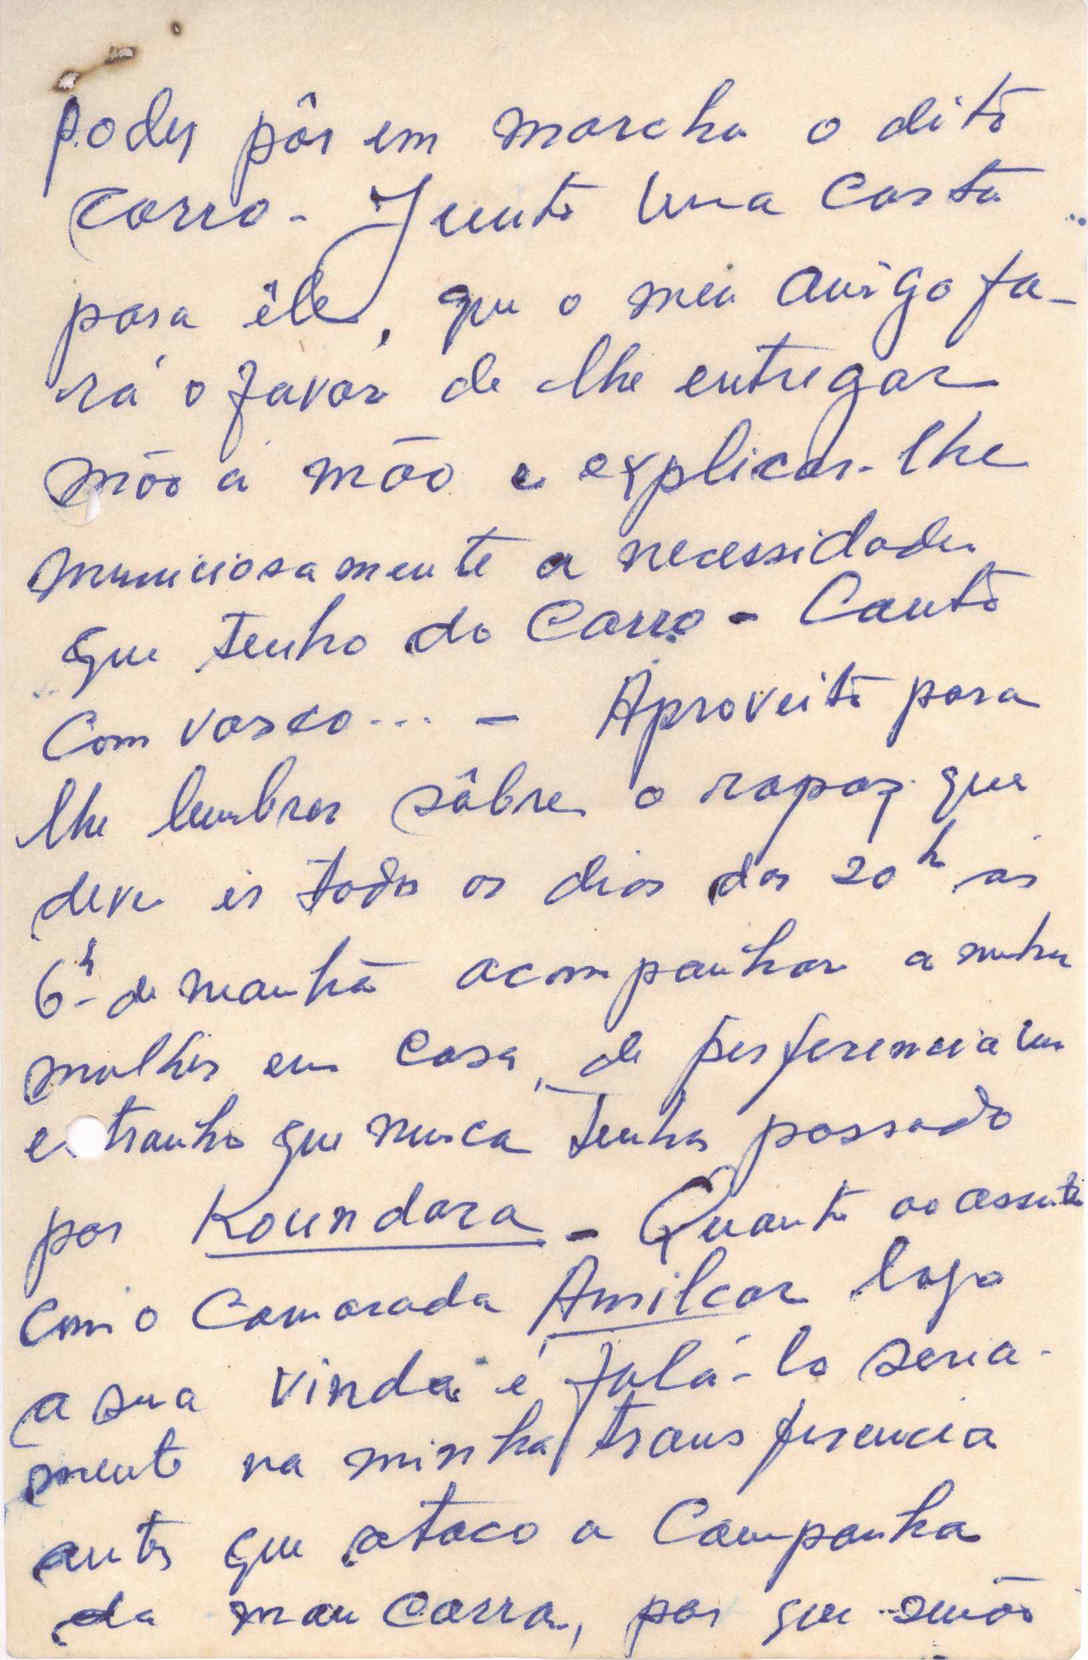 poder pôr em marcha o dito
carro - Junto uma carta
para êle, que o meu amigo fa-
rá o favor de lhe entregar
mão a mão e explicar-lhe
municiosamente a necessidade
que tenho do carro - Conto
com vosco... - Aproveito para
lhe lembrar sôbre o rapaz que
deve ir todos os dias das 20h às
6h de manhã acompanhar a minha
mulher em casa, de perferencia um
estranho que nunca tenha passado
por Koundara - Quanto ao assunto
com o Camarada Amilcar logo
a sua vinda é falá-lo seria-
mente na minha transferencia
antes que ataco a Campanha
da mancarra, por que senão